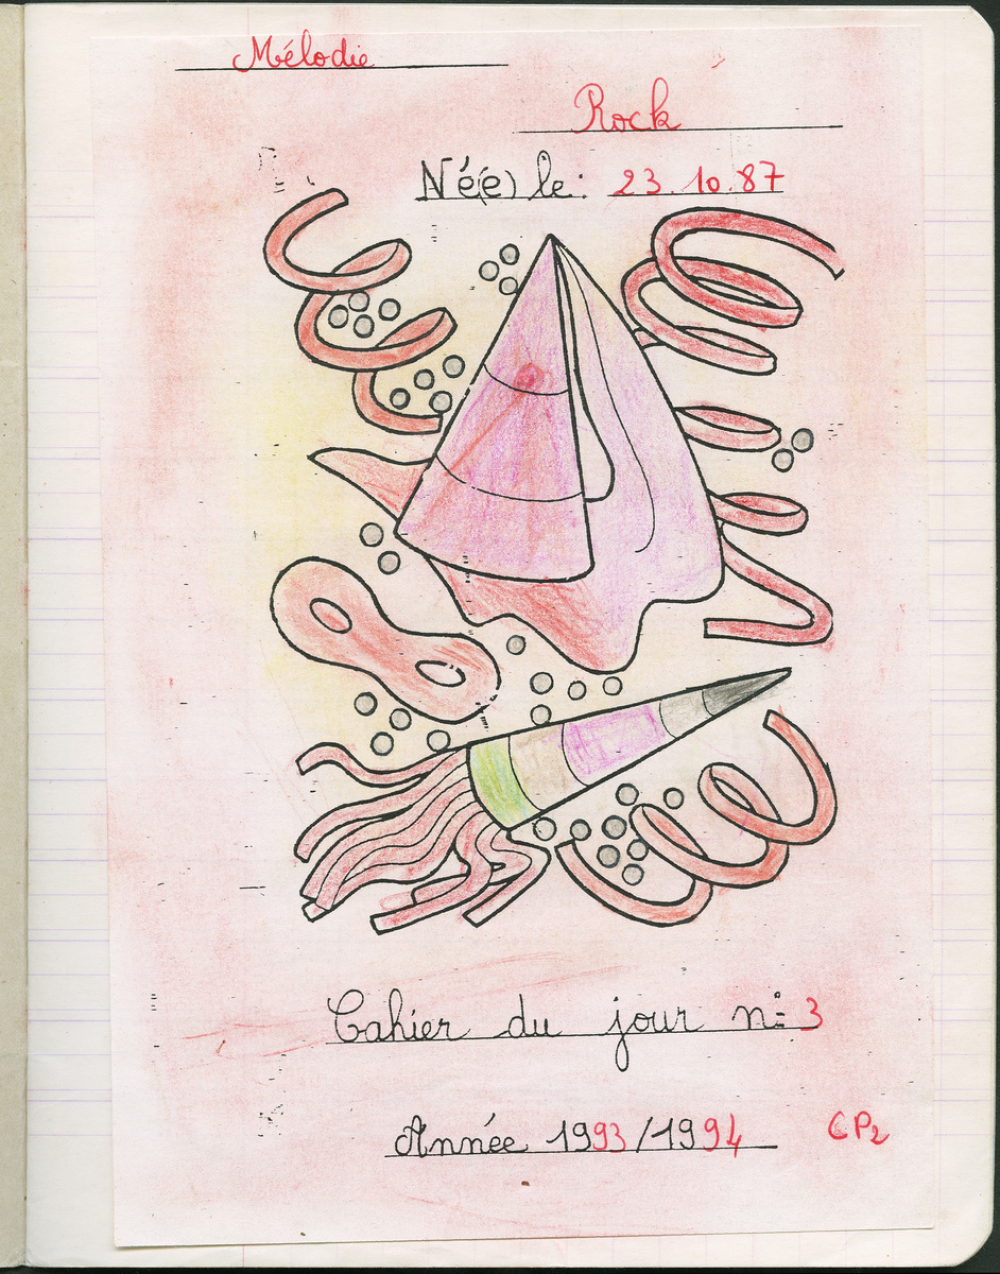 Mélodie
Rock
Né(e) le: 23.10.87
Cahier du jour n° 3
Année 1993/1994 CP2